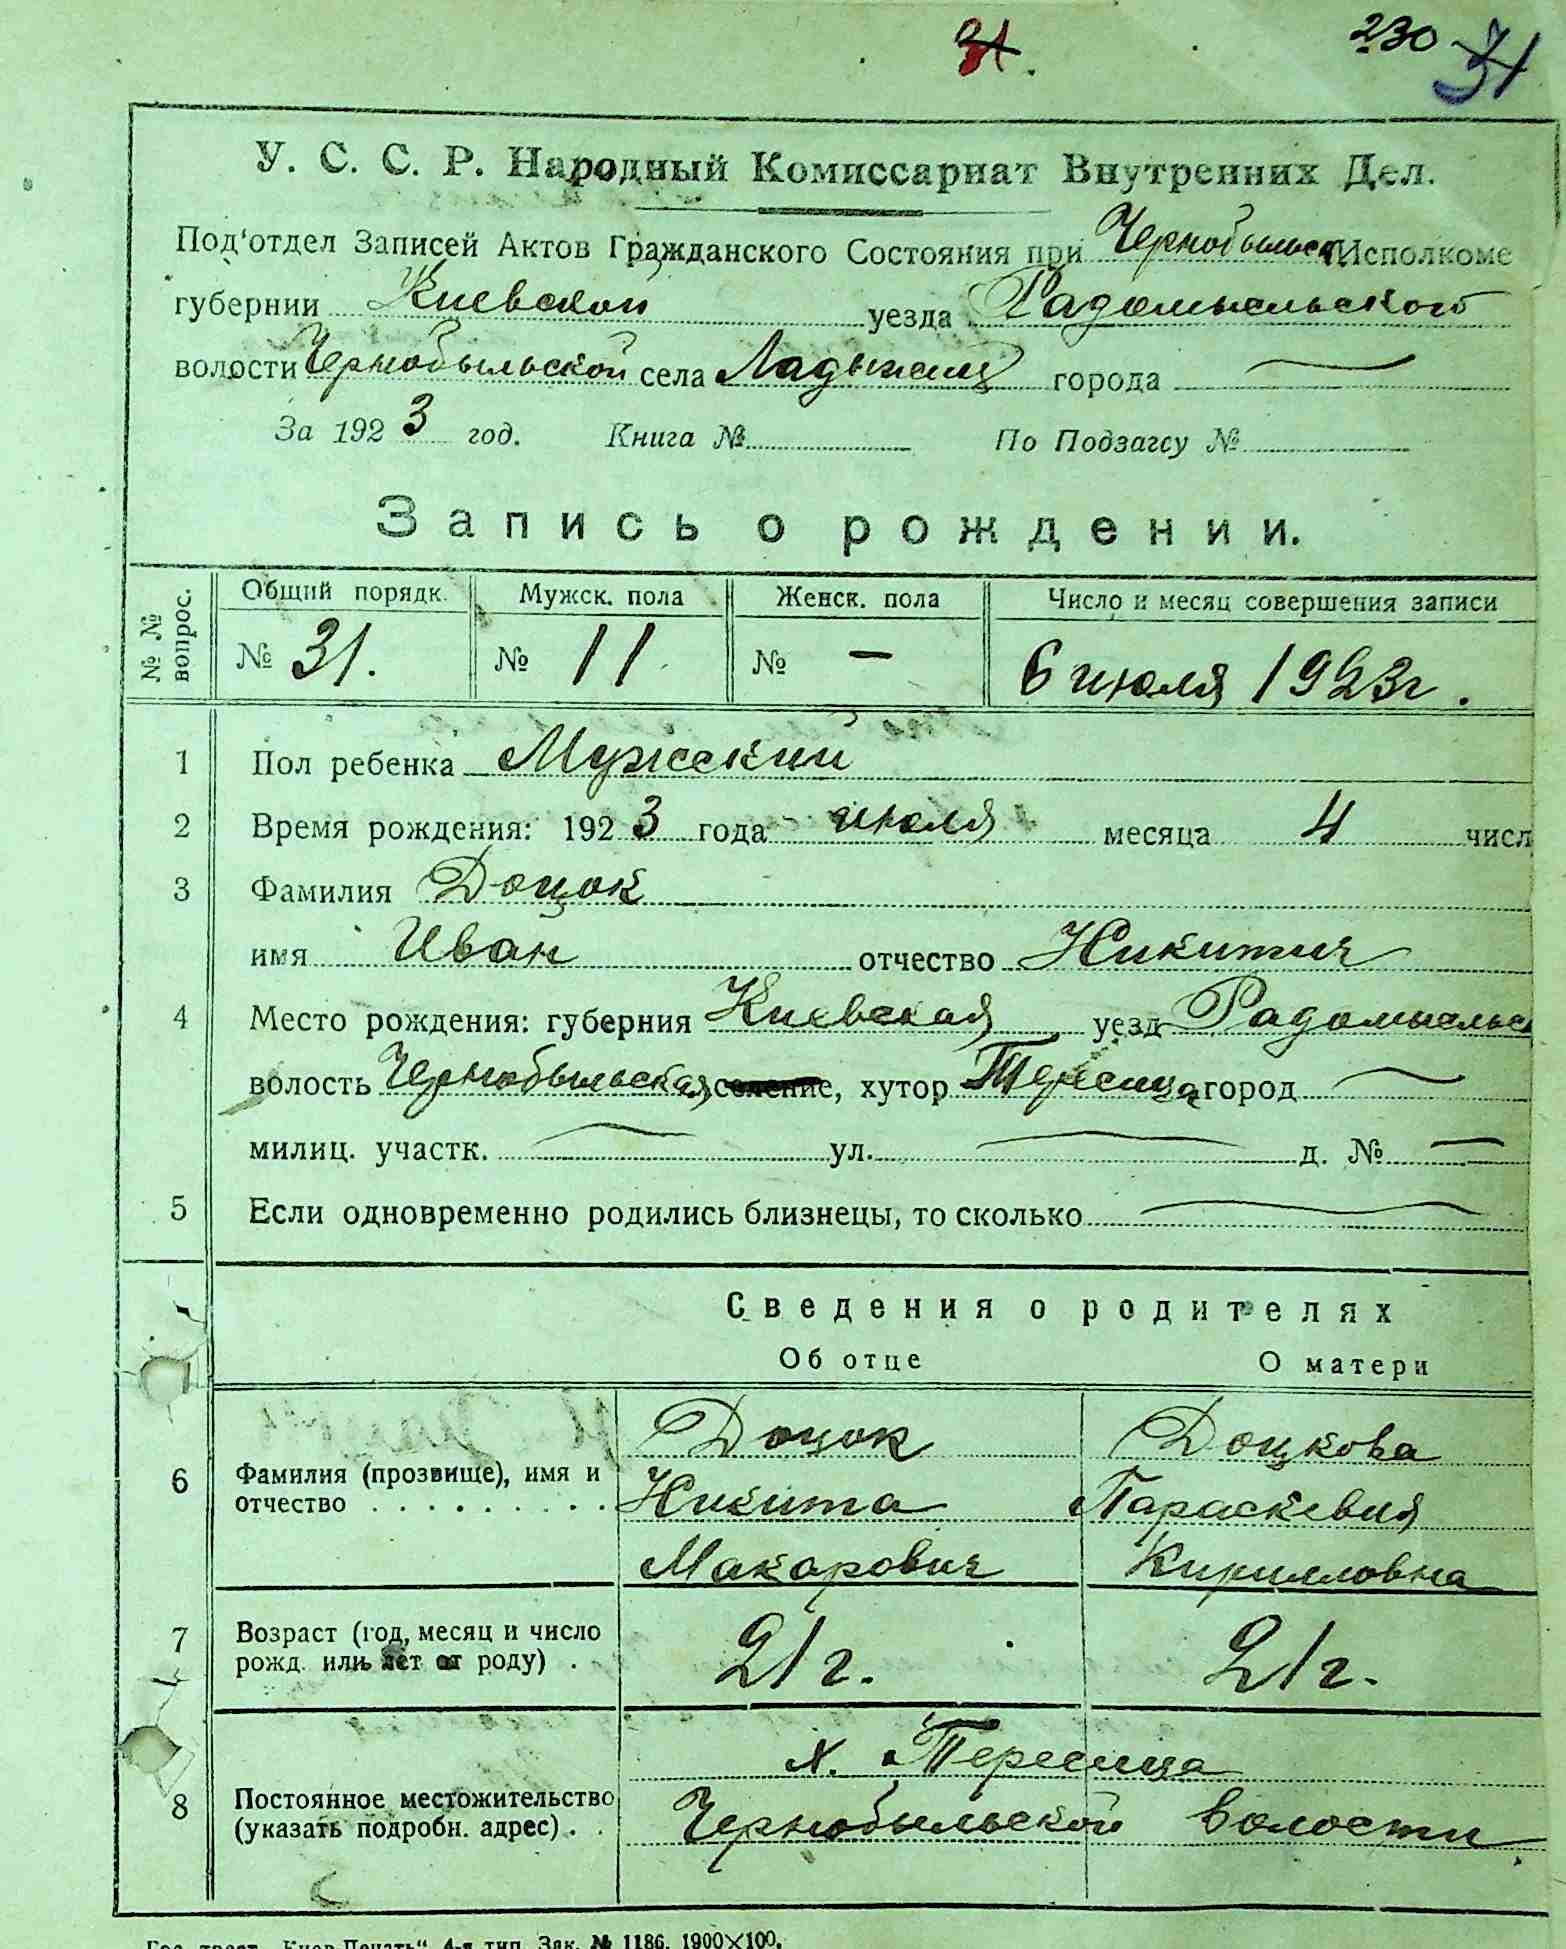 31.
230 31
У. С. С. Р. Народный Комиссариат Внутренних Дел.
Под'отдел Записей Актов Гражданского Состояния при Чернобыльск Исполкоме
губернии Киевской уезда Радомысльского
волости Чернобыльской села Ладыжич города —
За 1923 год. Книга № По Подзагсу №
Запись о рождении.
№ № вопрос. Общий порядк. Мужск. пола Женск. пола Число и месяц совершения записи
№ 31. № 11 № — 6 июля 1923 г.
1 Пол ребенка Мужеский
2 Время рождения: 1923 года июля месяца 4 числ
3 Фамилия Доцок
имя Иван отчество Никитич
4 Место рождения: губерния Киевская уезд Радомысльс
волость Чернобыльская, селение, хутор Тересица город —
милиц. участк. — ул. — д. № —
5 Если одновременно родились близнецы, то сколько —
Сведения о родителях
Об отце О матери
Доцок Доцкова
6 Фамилия (прозвище), имя и отчество . . . . . . . . . . Никита Параскевия
Макарович Кирилловна
7 Возраст (год, месяц и число рожд. или лет от роду) . 21 г. 21 г.
х. Тересица
8 Постоянное местожительство (указать подробн. адрес) . . Чернобыльской волости
Гос. трест „Киев-Печать“ 4-я тип. Зак. № 1186. 1900×100.